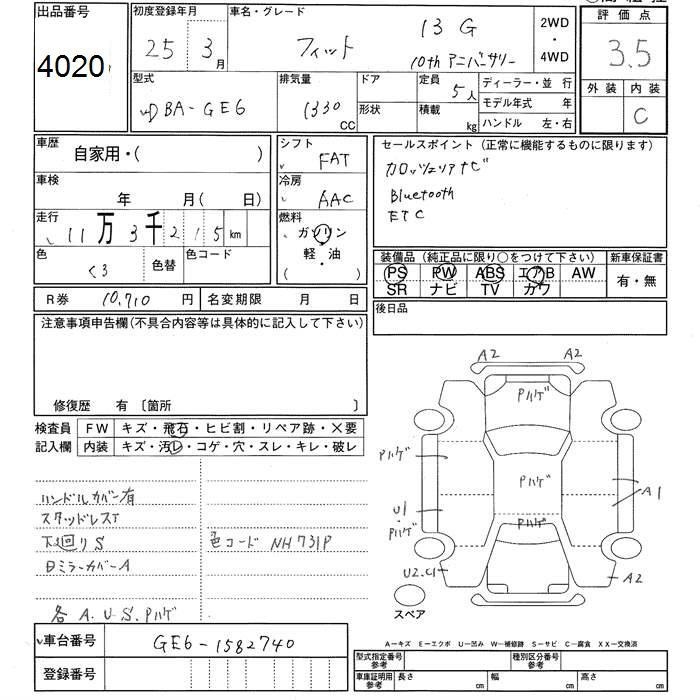 出品番号 4020
初度登録年月 25 3月
車名・グレード フィット 13G 10th アニバーサリー
2WD・4WD
評価点 3.5
型式 DBA-GE6
排気量 1330 CC
ドア
形状
定員 5人
積載 kg
ディーラー・並 行
モデル年式 年
ハンドル 左・右
外装 内装 C
車歴 自家用・( )
シフト FAT
セールスポイント (正常に機能するものに限ります)
車検 年 月(日)
冷房 AAC
カロッツェリアナビ
Bluetooth
ETC
走行 11万3千215km
燃料 ガソリン・軽・油( )
色 クロ
色替
色コード
装備品 (純正品に限り○をつけて下さい) 新車保証書
PS PW ABS エアB AW 有・無
SR ナビ TV カワ
R券 10,710円 名変期限 月 日
後日品
注意事項申告欄(不具合内容等は具体的に記入して下さい)
修復歴 有 〔箇所 〕
検査員記入欄
FW キズ・飛石・ヒビ割・リペア跡・×要
内装 キズ・汚レ・コゲ・穴・スレ・キレ・破レ
ハンドルカバー有
スタッドレスT
下廻りS 色コード NH731P
日ミラーカバーA
各A.U.S.Pハゲ
A2 A2
Pハゲ
Pハゲ
Pハゲ
A1
U1・Pハゲ
Pハゲ
U2.C1
A2
スペア
車台番号 GE6-1582740
登録番号
A-キズ E-エクボ U-凹み W-補修跡 S-サビ C-腐食 XX-交換済
型式指定番号 参考 種別区分番号 参考
車庫証明用 参考 長さ cm 幅 cm 高さ cm